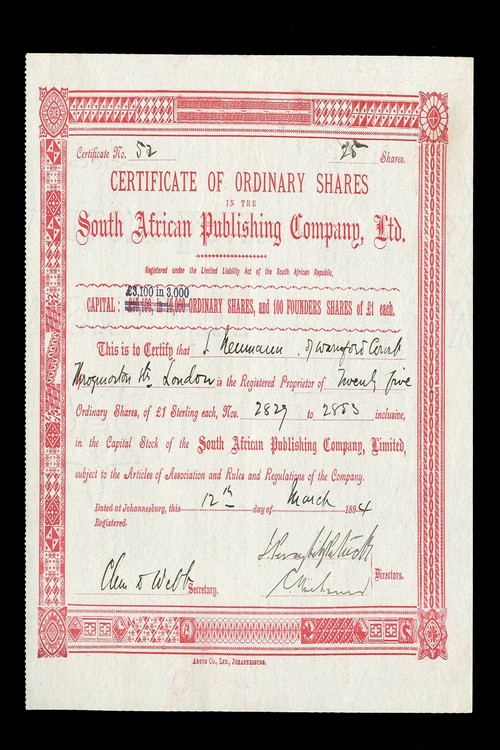 Certificate No. 52 25 Shares.
CERTIFICATE OF ORDINARY SHARES
IN THE
South African Publishing Company, Ltd.
Registered under the Limited Liability Act of the South African Republic.
£3,100 in 3,000
CAPITAL: ORDINARY SHARES, and 100 FOUNDERS SHARES of £1 each.
This is to Certify that S. Neumann. of Warnford Court
Throgmorton St. London is the Registered Proprietor of Twenty five
Ordinary Shares, of £1 Sterling each, Nos. 2829 to 2853 inclusive,
in the Capital Stock of the South African Publishing Company, Limited,
subject to the Articles of Association and Rules and Regulations of the Company.
Dated at Johannesburg, this 12th day of March 1894
Registered.
Clem D Webb Secretary.
Directors.
Argus Co., Ltd., Johannesburg.